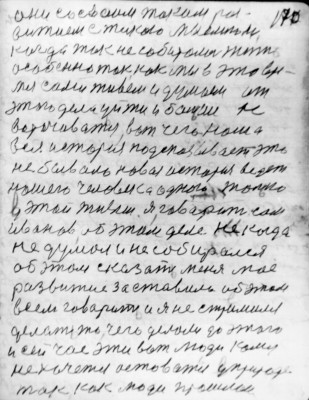 170
они со своим таким раз-
витием с тихого мышлени,
когда так не собирались жить
особенно так как мы в это вре-
мя сами живем и думаем от
этого дела уйти и больше не
ворочевать, вот чего наша
вся история подсказывает это
не бывало новая история ведет
нашего человека одного только
и этой живем. я говорит сам
Иванов об этом деле некогда
не думал и не собирался
об этом сказать меня мое
развитие заставило об этом
всем говорить и я не стремился
делать то, чего делали до этого
и сейчас эти вот люди кому
не хочется оставатся в природе
так как люди прошлой